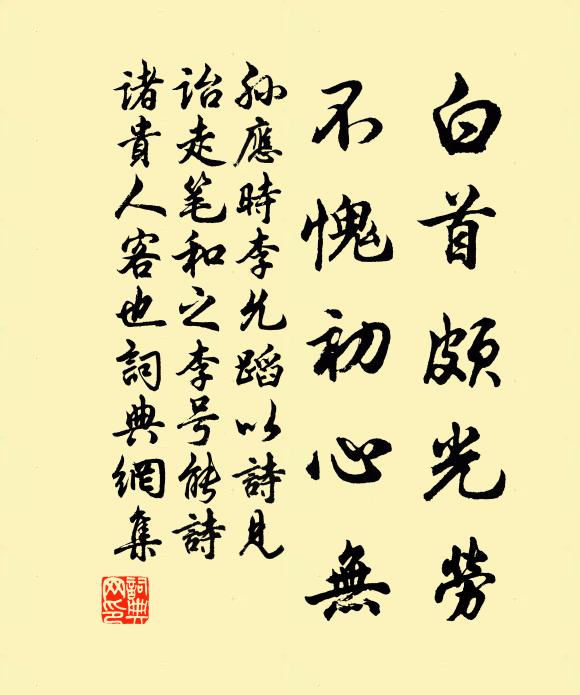 白首頗光勞
不愧初心無
孙應時李允蹈以詩見
詒走笔和之李号能詩
诸貴人客也詞典網集
詞典
网印